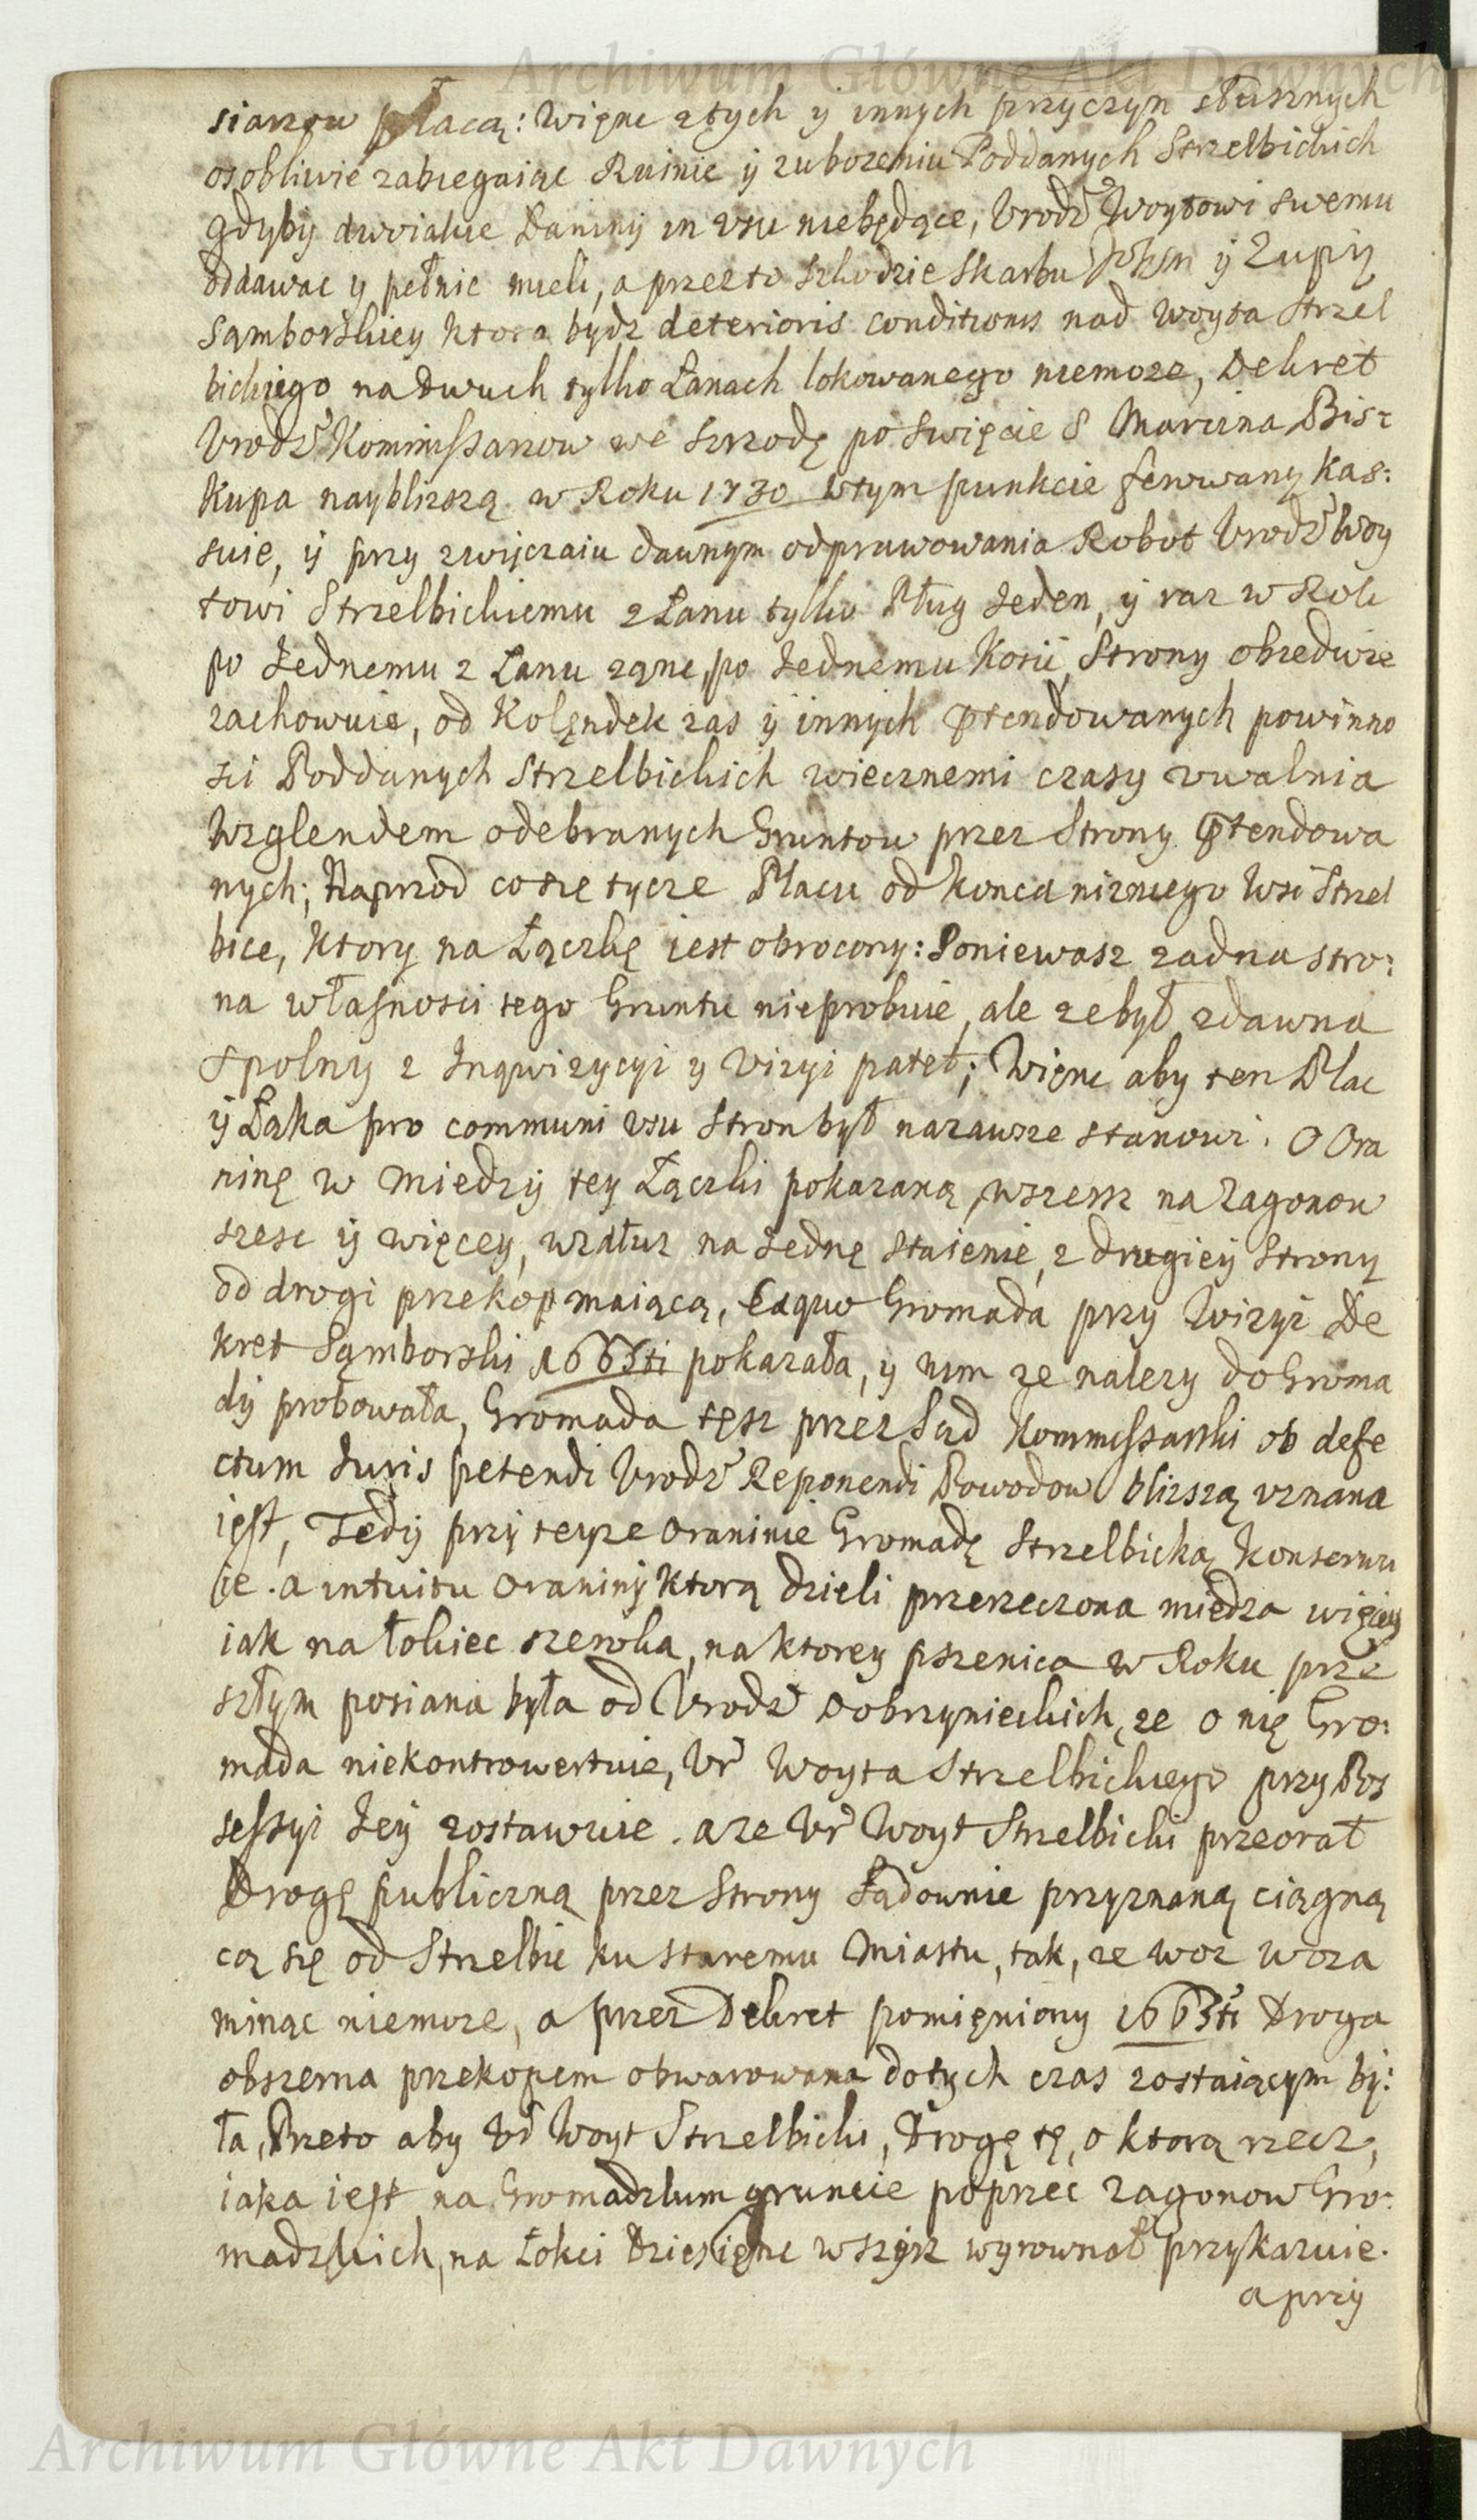 Archiwum Główne Akt Dawnych
siarzow płacą: Więnc z tych y innych przyczyn słusznych
osobliwie zabiegaiąc Ruinie ÿ zubozeniu Poddanych Strzelbickich
gdyby dwoiakie Daniny in usu niebędące, Urodz Woytowi swemu
oddawac y pełnic mieli, a przezto szkodzie Skarbu ÿ Zupy
Sąmborskiey ktora bydz deterioris conditionis nad Woyta Strzel
bickiego na dwuch tylko Łanach lokowanego niemoze, Dekret
Urodz Kommissarzow we Szrzodę po Swięcie S Marcina Bis:
kupa nayblizszą w Roku 1730 wtym punkcie ferowany kas:
suie, ÿ przy zwÿczaiu dawnym odprawowania Robot Urodz Woy
towi Strzelbickiemu z Łanu tylko Pług Jeden, ÿ raz w Rok
po Jednemu z Łanu ząnc, po Jednemu Kosic Strony obiedwie
zachowuie, od Kolęndek zas ÿ innych ptendowanych powinno
sci Poddanych Strzelbickich wiecznemi czasy uwalnia
Wzglendem odebranych Gruntow przez Strony ptendowa
nych; Naprzod co się tycze Placu od konca niznieg̃o Wsi Strzel
bice, ktory na Łączkę iest obrocony: Poniewasz zadna stro:
na własnosci tego Gruntu nieprobuie, ale zebył zdawna
spolny z Inqwizycyi y Vizyi patet; Więnc aby ten Plac
ÿ Łąka pro communi usu Stron był nazawsze stanowi. O Ora
ninę w Miedzÿ tey Łączki pokazaną, wszersz na Zagonow
szesc ÿ więcey, wzdłuz na Jednę staienie, z drugieÿ Strony
od drogi przekop maiącą, Eaquo Gromada przy Wizyi De
kret Sąmborski 1663ti pokazała, y nim ze nalezy do Groma
dÿ probowała, Gromada tęsz przez Sąd Kommissarski ob defe
ctum Juris petendi Urodz Reponendi Powodow blizszą uznana
iest, Tedÿ przÿ teyze Oraninie Gromadę Strzelbicką konserwu
ie. a intuitu Oraninÿ ktorą dzieli przerzeczona miedza więcey
iak na łokiec szeroka, na ktorey pszenica w Roku prze
szłym posiana była od Urodz Dobrzynieckich, ze o nię Gro:
mada niekontrowertuie, Ur Woyta Strzelbickiego przy Pos
sessyi Jeÿ zostawuie. a ze Ur Woyt Strzelbicki przeorał
Drogę publiczną przez Strony Sądownie przyznaną ciągną
cą się od Strzelbic ku staremu Miastu, tak, ze woz woza
minąc niemoze, a przez Dekret pomięniony 1663ti Droga
obszerna przekopem obwarowana dotych czas zostaiącym bÿ:
ła, Przeto aby Ur Woyt Strzelbicki, Drogę tę, o ktorą rzecz,
iaka iest na Gromadzkim gruncie poprzec zagonow Gro:
madzkich, na Łokci Dziesięnc wszÿrz wyrownał przykazuie.
a przÿ
Archiwum Główne Akt Dawnych